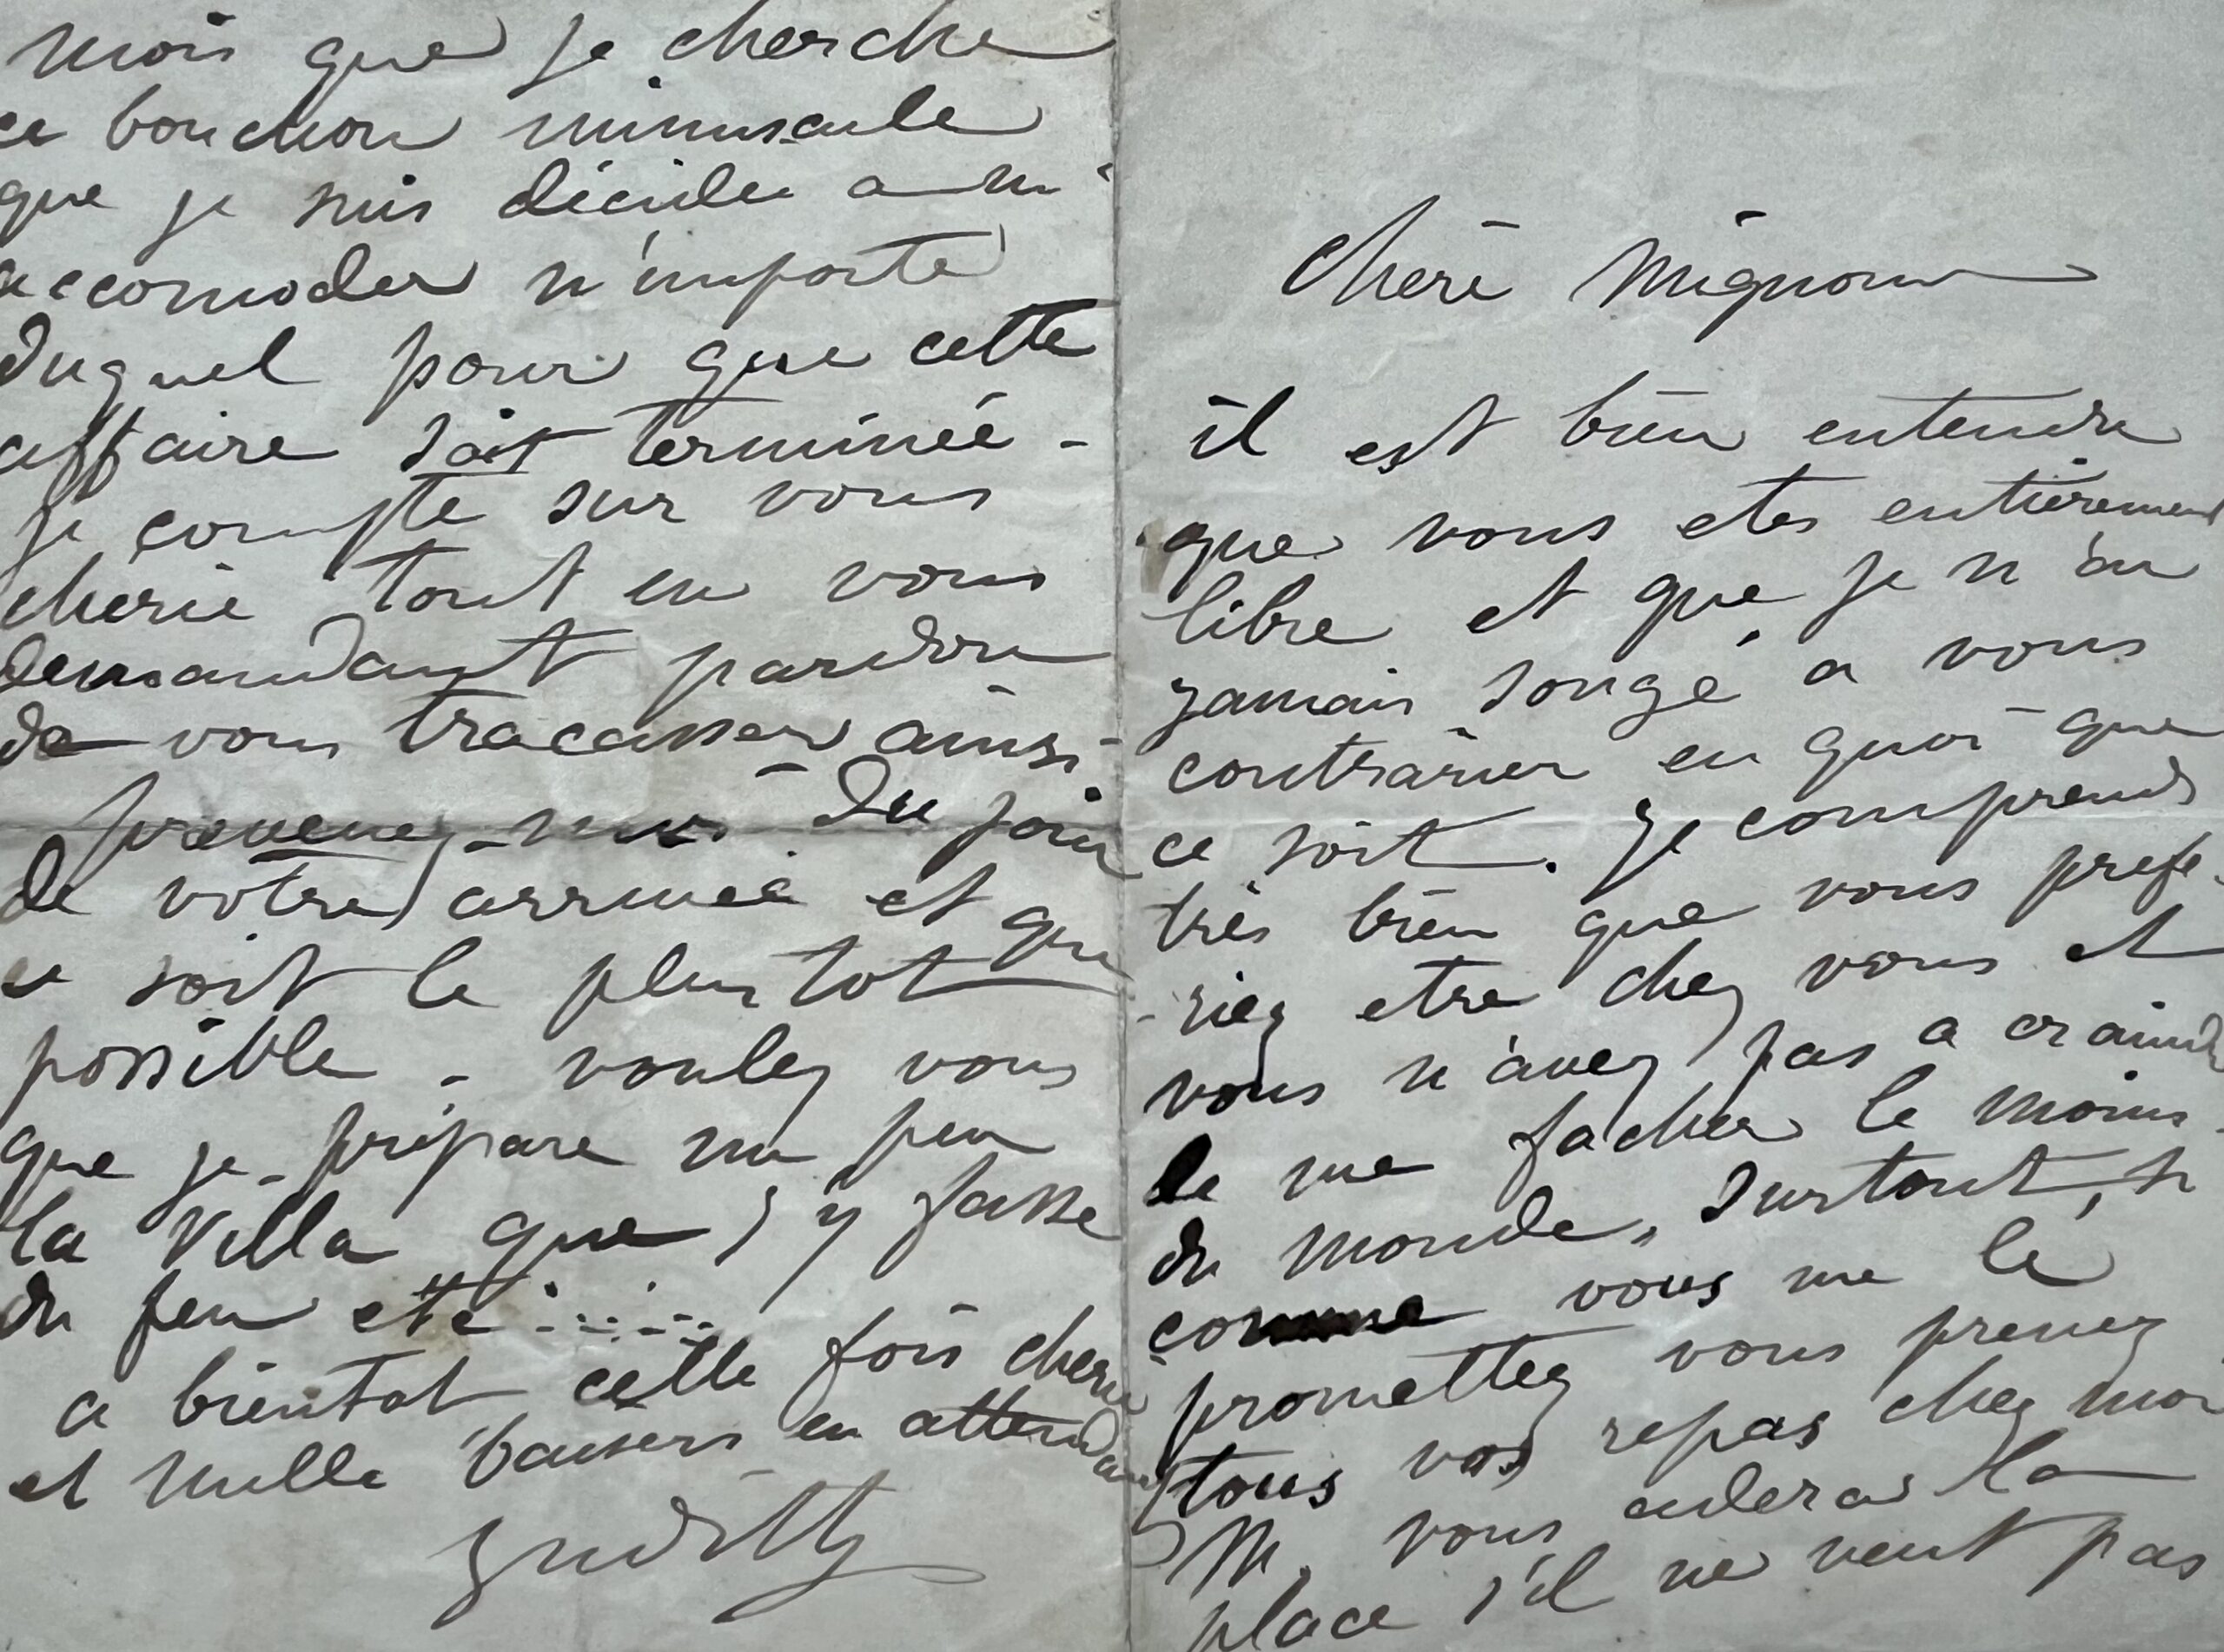 cheré Mignonne
il est bien entendu
que vous etes entièrement
libre et que je n'ai
jamais songé a vous
contrarier en quoi que
ce soit. Je comprends
très bien que vous prefe-
-riez etre chez vous et
vous n'avez pas a craindre
de me facher le moins
du monde, surtout, si
comme vous me le
promettez vous prenez
tous vos repas chez moi
M. vous cedera sa
place s'il ne veut pas
mois que je cherche
ce bouchon minuscule
que je suis décidée a m'
accomoder n'importe
duquel pour que cette
affaire soit terminée -
je compte sur vous
cherie tout en vous
demandant pardon
de vous tracasser ainsi
prevenez-moi du jour
de votre arrivée et que
ce soit le plus tot
possible - voulez vous
que je prépare un peu
la villa que j'y fasse
du feu etc......
a bientot cette fois cherie
et mille baisers en attendant
Judith